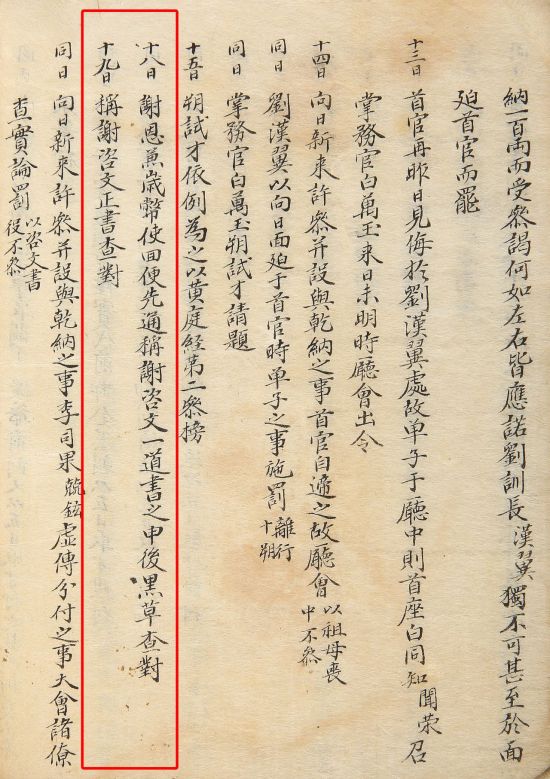 納一百両而受叅謁何如左右皆應諾劉訓長漢翼獨不可甚至於面
廹首官而罷
十三日 首官再昨日見侮於劉漢翼處故单子于廳中則首座白同知聞荣召
掌務官白萬玉来日未明時廳會出令
十四日 向日新来許叅并設與乾納之事首官白遞之故廳會以祖母喪中不叅
同日 劉漢翼以向日面廹于首官時单子之事施罰離行十朔
同日 掌務官白萬玉朔試才請題
十五日 朔試才依例為之以黄庭経第二叅榜
十八日 謝恩兼歳幣使回便先通稱謝咨文一道書之申後黒草查對
十九日 稱謝咨文正書查對
同日 向日新来許叅并設與乾納之事李司果兢鉉虚傳分付之事大會諸僚
查實論罰以咨文書役不叅